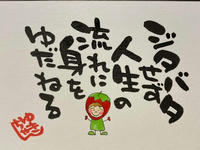 ジタバタ
せず
人生の
流れに
身を
ゆだねる